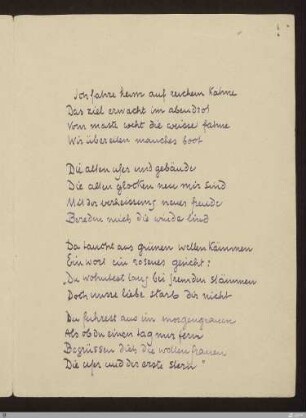 Ich fahre heim auf reichem kahne
Das ziel erwacht im abendrot
Vom maste weht die weisse fahne
Wir übereilen manches boot
Die alten ufer und gebäude
Die alten glocken neu mir sind
Mit der verheissung neuer freude
Bereden mich die winde lind
Da taucht aus grünen wellenkämmen
Ein wort ein rosenes gesicht:
„Du wohntest lang bei fremden stämmen
Doch unsre liebe starb dir nicht
Du fuhrest aus im morgengrauen
Als ob du einen tag nur fern
Begrüssen dich die wellenfrauen
Die ufer und der erste stern"